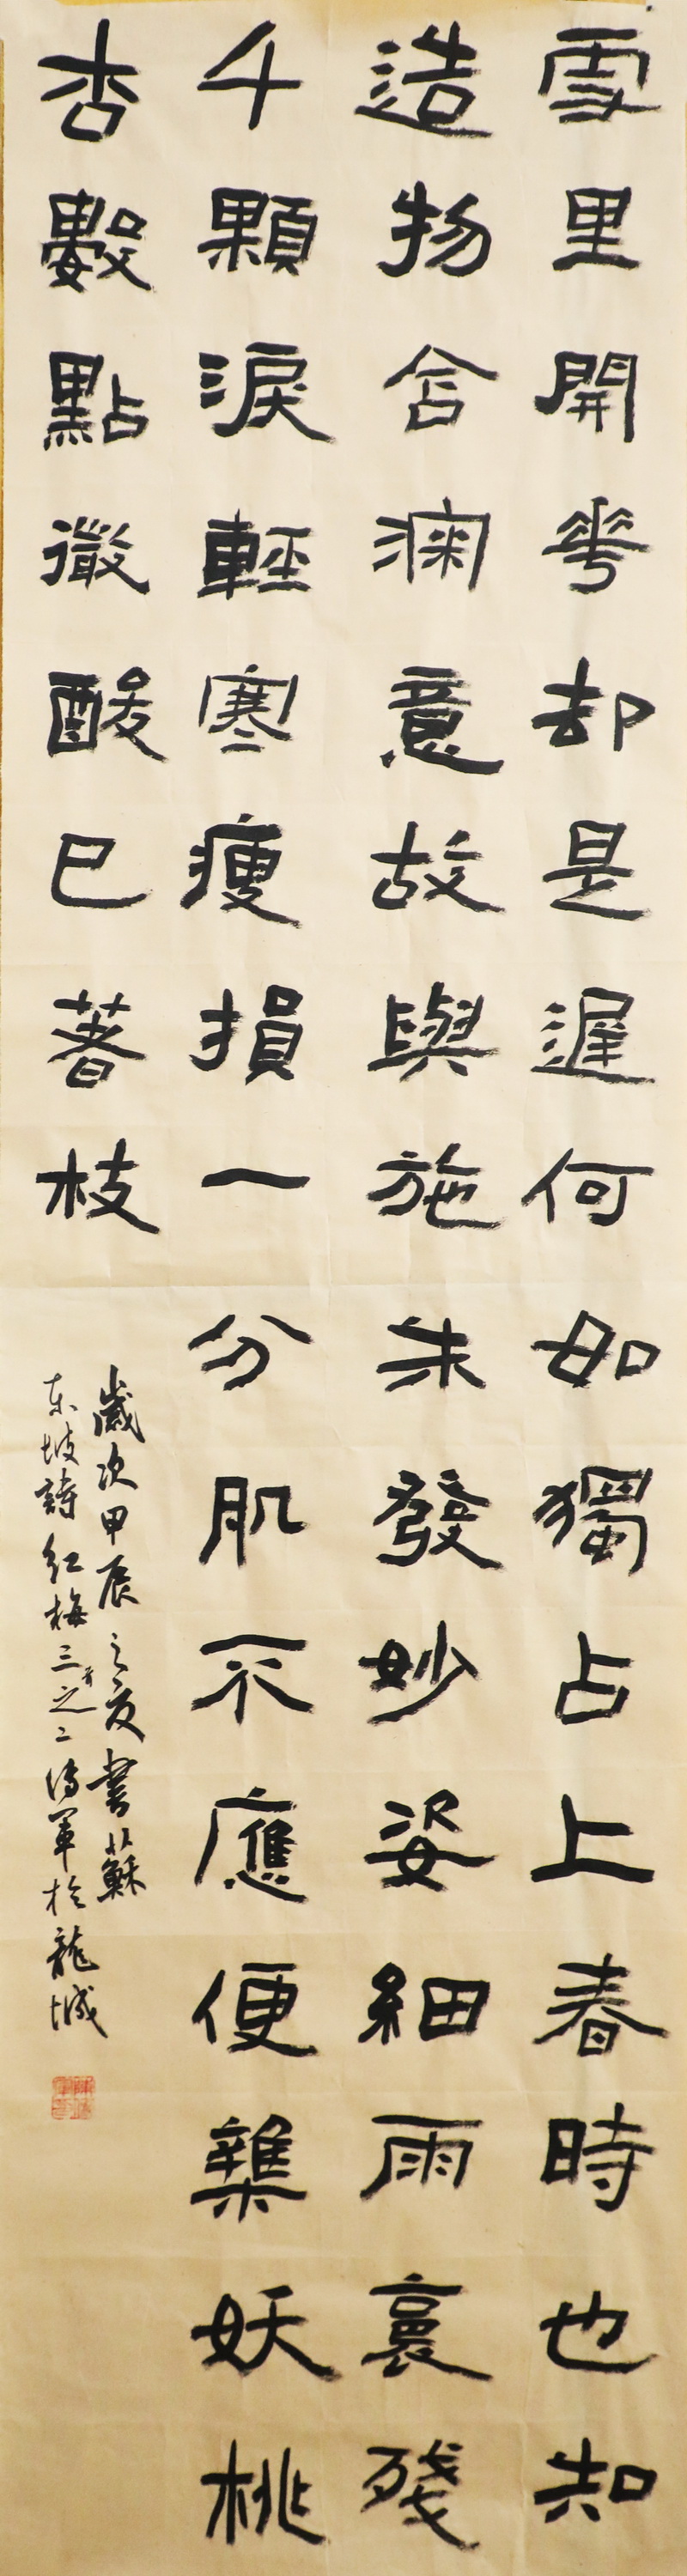 雪里開華却是遲何如獨占上春時也知
造物含深意故與施朱發妙姿細雨裛殘
千顆淚輕寒瘦損一分肌不應便雜妖桃
杏數點微酸已著枝
歲次甲辰之夏書蘇
東坡詩紅梅三首之二軍於龍城